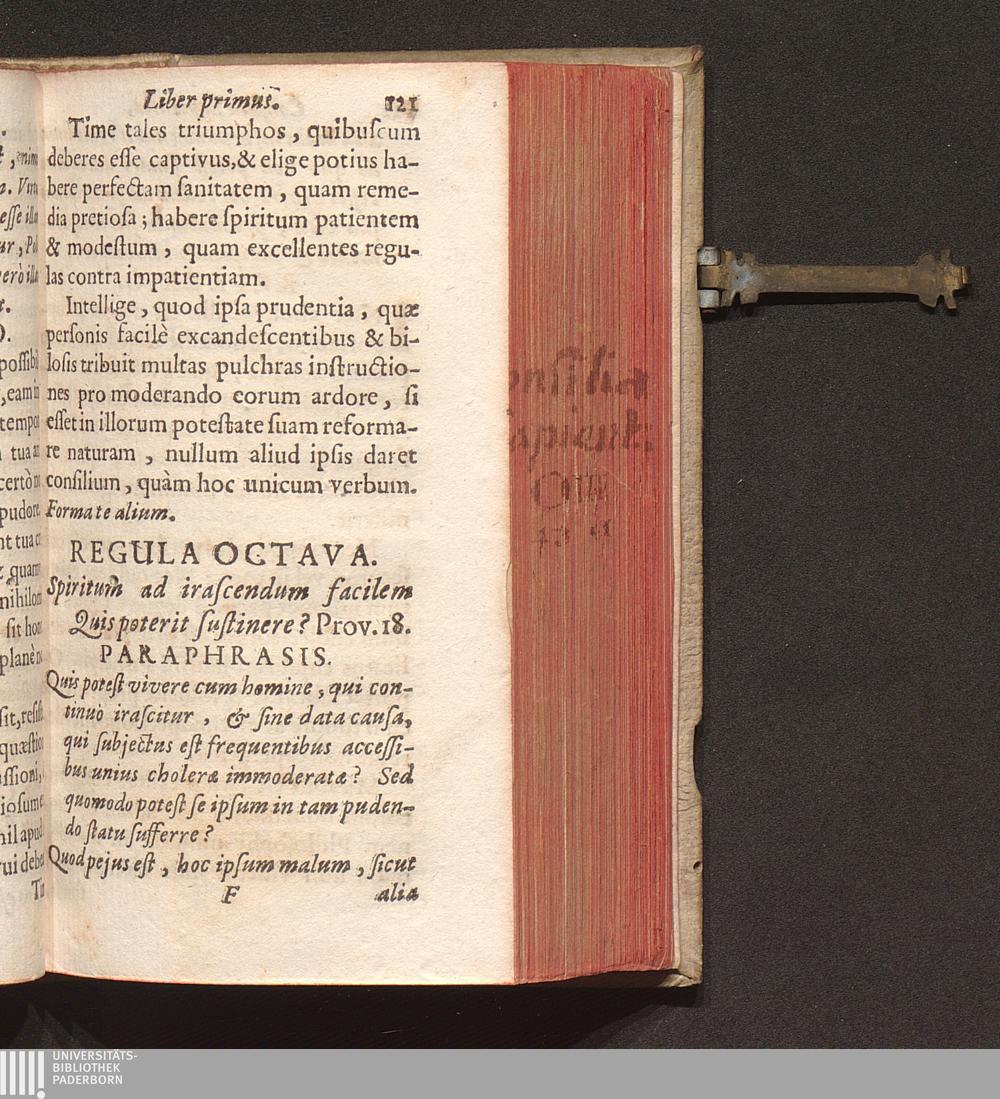 Liber primus. 121
Time tales triumphos, quibuſcum
deberes eſſe captivus, & elige potius ha-
bere perfectam ſanitatem, quam reme-
dia pretioſa; habere ſpiritum patientem
& modeſtum, quam excellentes regu-
las contra impatientiam.
Intellige, quod ipſa prudentia, quæ
perſonis facilè excandeſcentibus & bi-
loſis tribuit multas pulchras inſtructio-
nes pro moderando eorum ardore, ſi
eſſet in illorum poteſtate ſuam reforma-
re naturam, nullum aliud ipſis daret
conſilium, quàm hoc unicum verbum.
Forma te alium.
REGULA OCTAVA.
Spiritum ad iraſcendum facilem
Quis poterit ſuſtinere? Prov. 18.
PARAPHRASIS.
Quis poteſt vivere cum homine, qui con-
tinuò iraſcitur, & ſine data cauſa,
qui ſubjectus eſt frequentibus acceſſi-
bus unius choleræ immoderatæ? Sed
quomodo poteſt ſe ipſum in tam puden-
do ſtatu ſufferre?
Quod pejus eſt, hoc ipſum malum, ſicut
F alia
UNIVERSITÄTS-
BIBLIOTHEK
PADERBORN